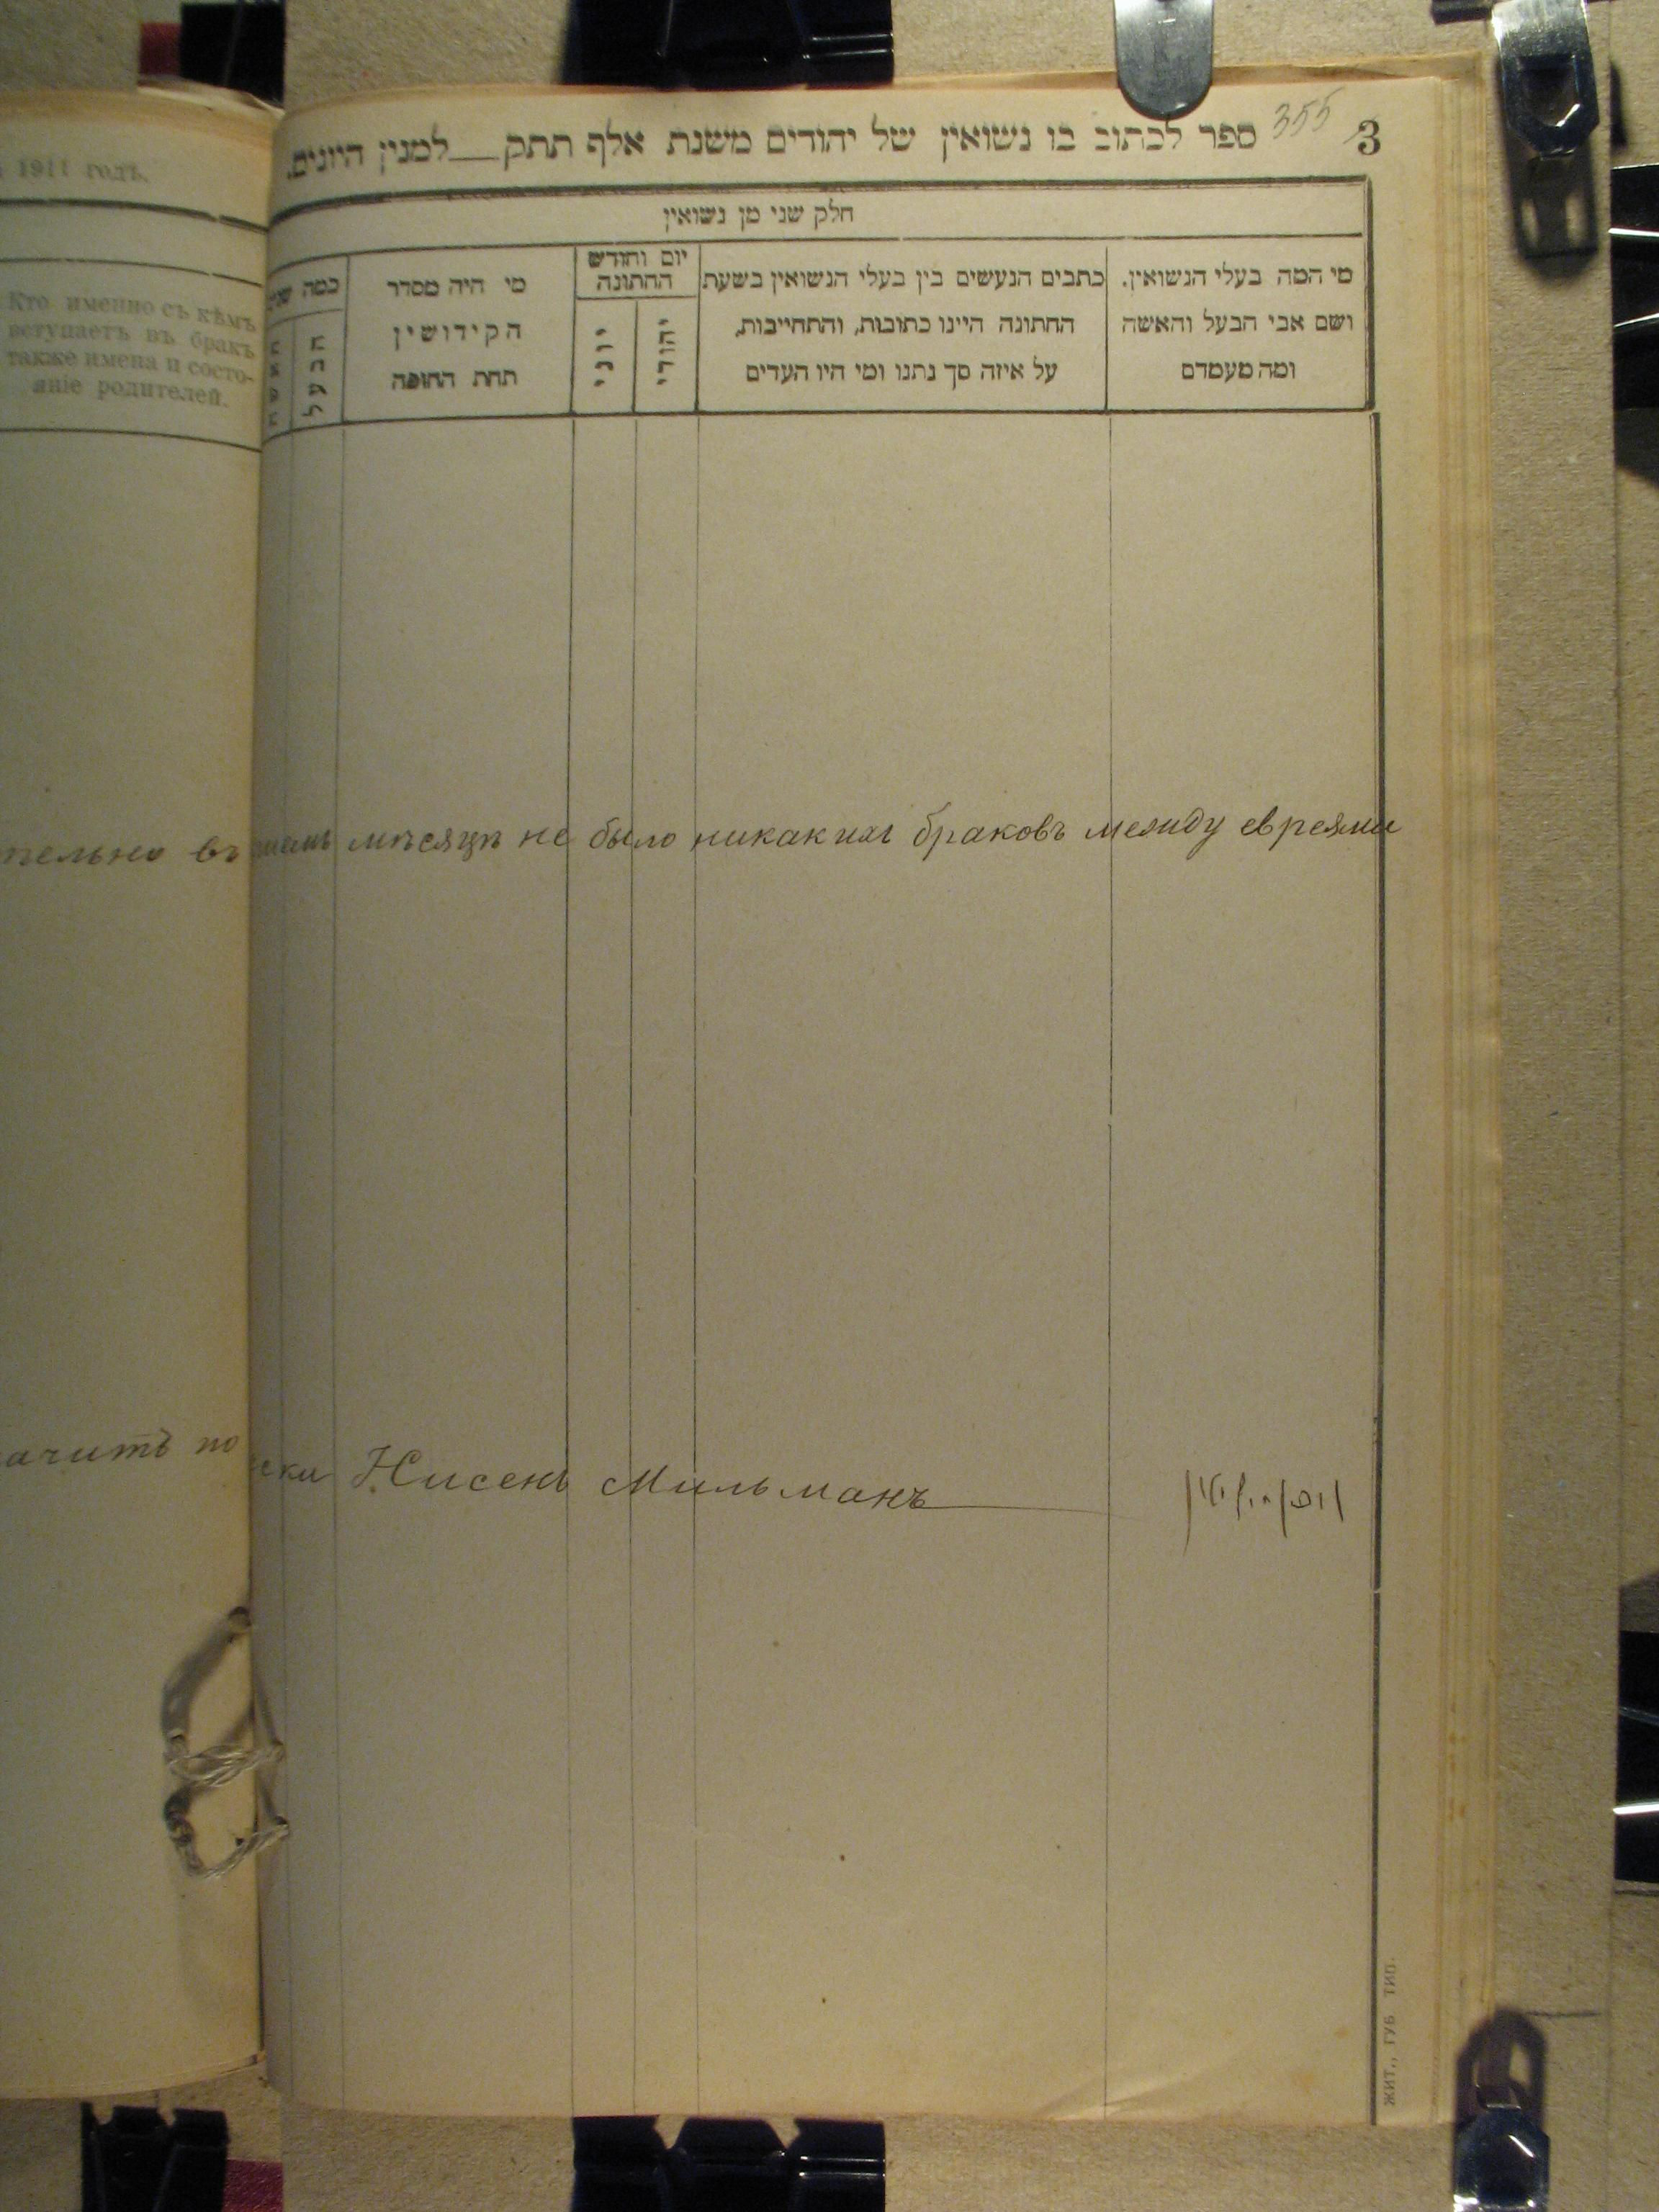 1911 годъ.
Кто именно съ кѣмъ
вступаетъ въ бракъ
также имена и состо-
яніе родителей.
355
3
ספר לכתוב בו נשואין של יהודים משנת אלף תתק__למנין היונים.
חלק שני מן נשואין
מי המה בעלי הנשואין.
ושם אבי הבעל והאשה
ומה מעמדם
כתבים הנעשים בין בעלי הנשואין בשעת
החתונה היינו כתובות, והתחייבות,
על איזה סך נתנו ומי היו העדים
יום וחודש
החתונה
יהודי
יוני
מי היה מסדר
הקידושין
תחת החופה
כמה
הבעל
האשה
тельно въ мѣсяцѣ не было никакихъ браковъ между евреями
ачитъ по ски Нисенъ Мильманъ
ЖИТ., ГУБ ТИП.